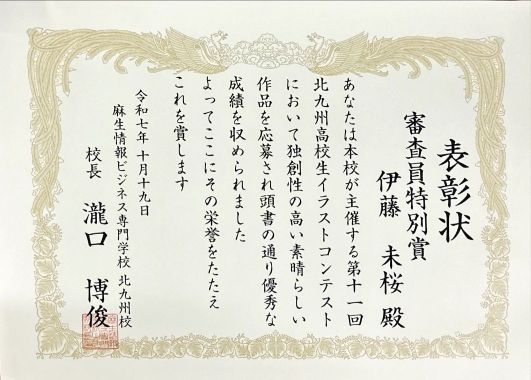 表彰状
審査員特別賞
伊藤 未桜 殿
あなたは本校が主催する第十一回
北九州高校生イラストコンテスト
において独創性の高い素晴らしい
作品を応募され頭書の通り優秀な
成績を収められました
よってここにその栄誉をたたえ
これを賞します
令和七年十月十九日
麻生情報ビジネス専門学校 北九州校
校長 瀧口 博俊